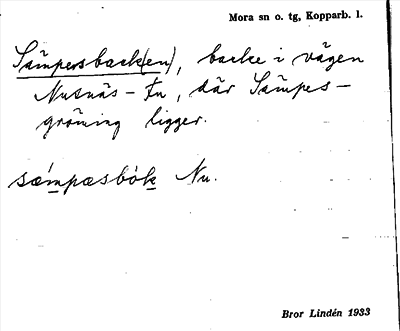 Mora sn o. tg, Kopparb. l.
Sämpersback(en), backe i vägen
Nusnäs – Fu, där Sämpes-
gröning ligger.
sǽmpæsbòk Nu.
Bror Lindén 1933